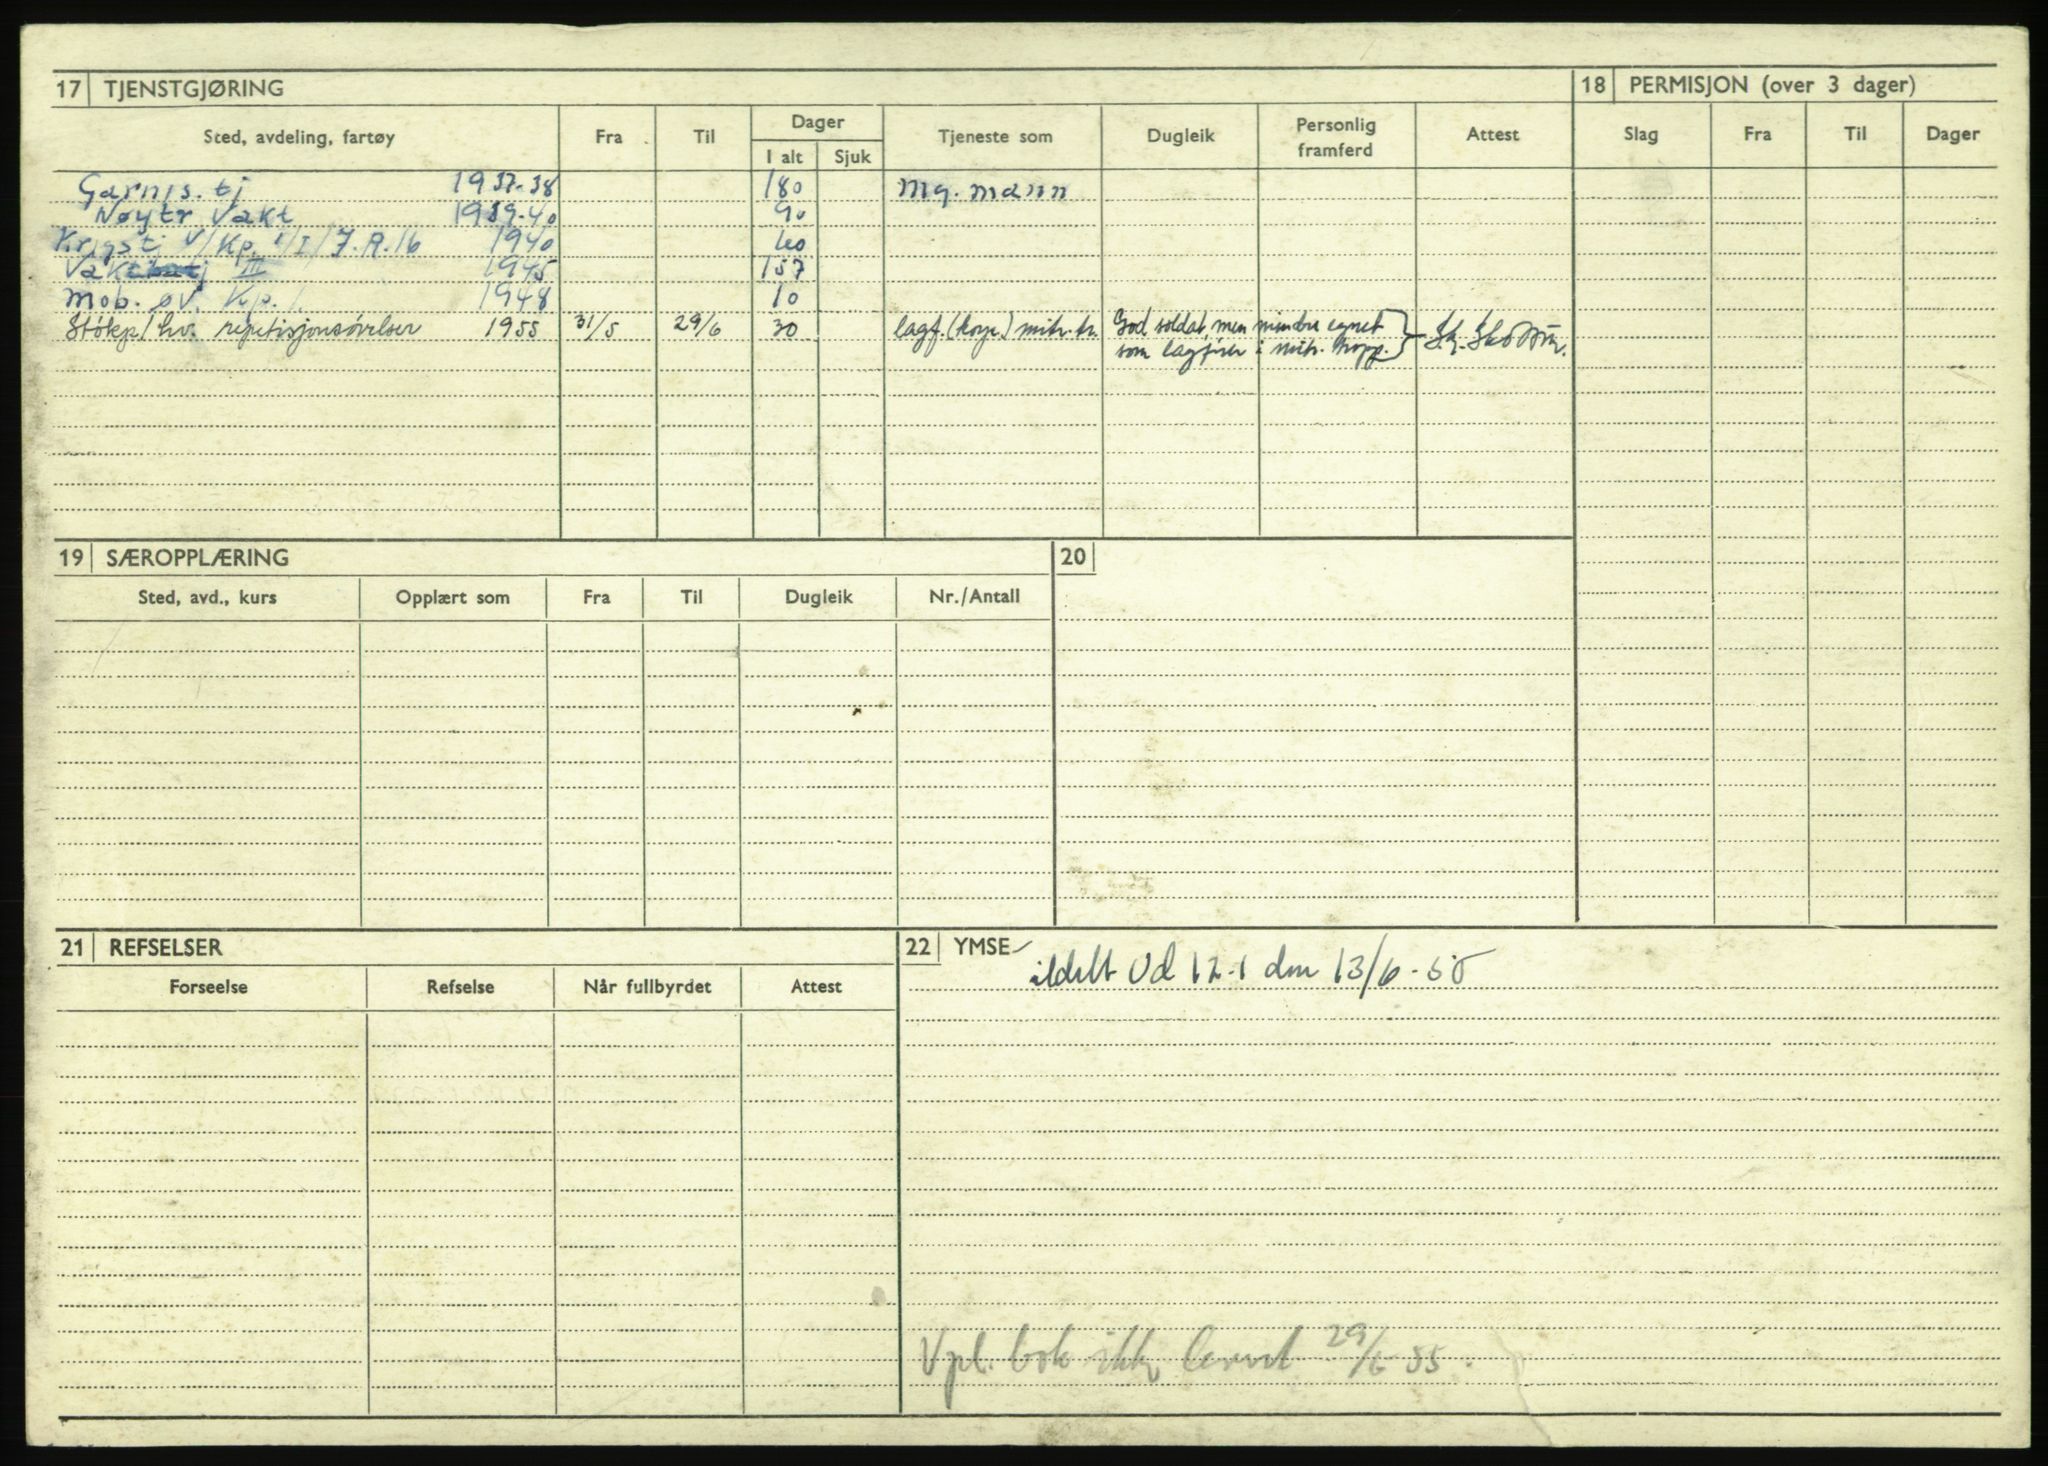 17 TJENSTGJØRING
18 PERMISJON (over 3 dager)
Sted, avdeling, fartøy Fra Til Dager Tjeneste som Dugleik Personlig framferd Attest Slag Fra Til Dager
I alt Sjuk
Garnis. tj 1937-38 180 Mg. mann
Nøytr Vakt 1939-40 90
Krigstj V/Kp. I/J.R.16 1940 60
III 1945 157
Mob. øv. Kp. 1948 10
Støkp/hv. repetisjonsøvelser 1955 31/5 29/6 30 lagf. (korp.) mitr. tr. God soldat, men mindre egnet
som lagfører i mitr. tropp.
19 SÆROPPLÆRING
20
Sted, avd., kurs Opplært som Fra Til Dugleik Nr./Antall
21 REFSELSER
22 YMSE
Forseelse Refselse Når fullbyrdet Attest
ildelt Ud 12-1 den 13/6-55
Vpl. bok ikke levert 29/6 55.